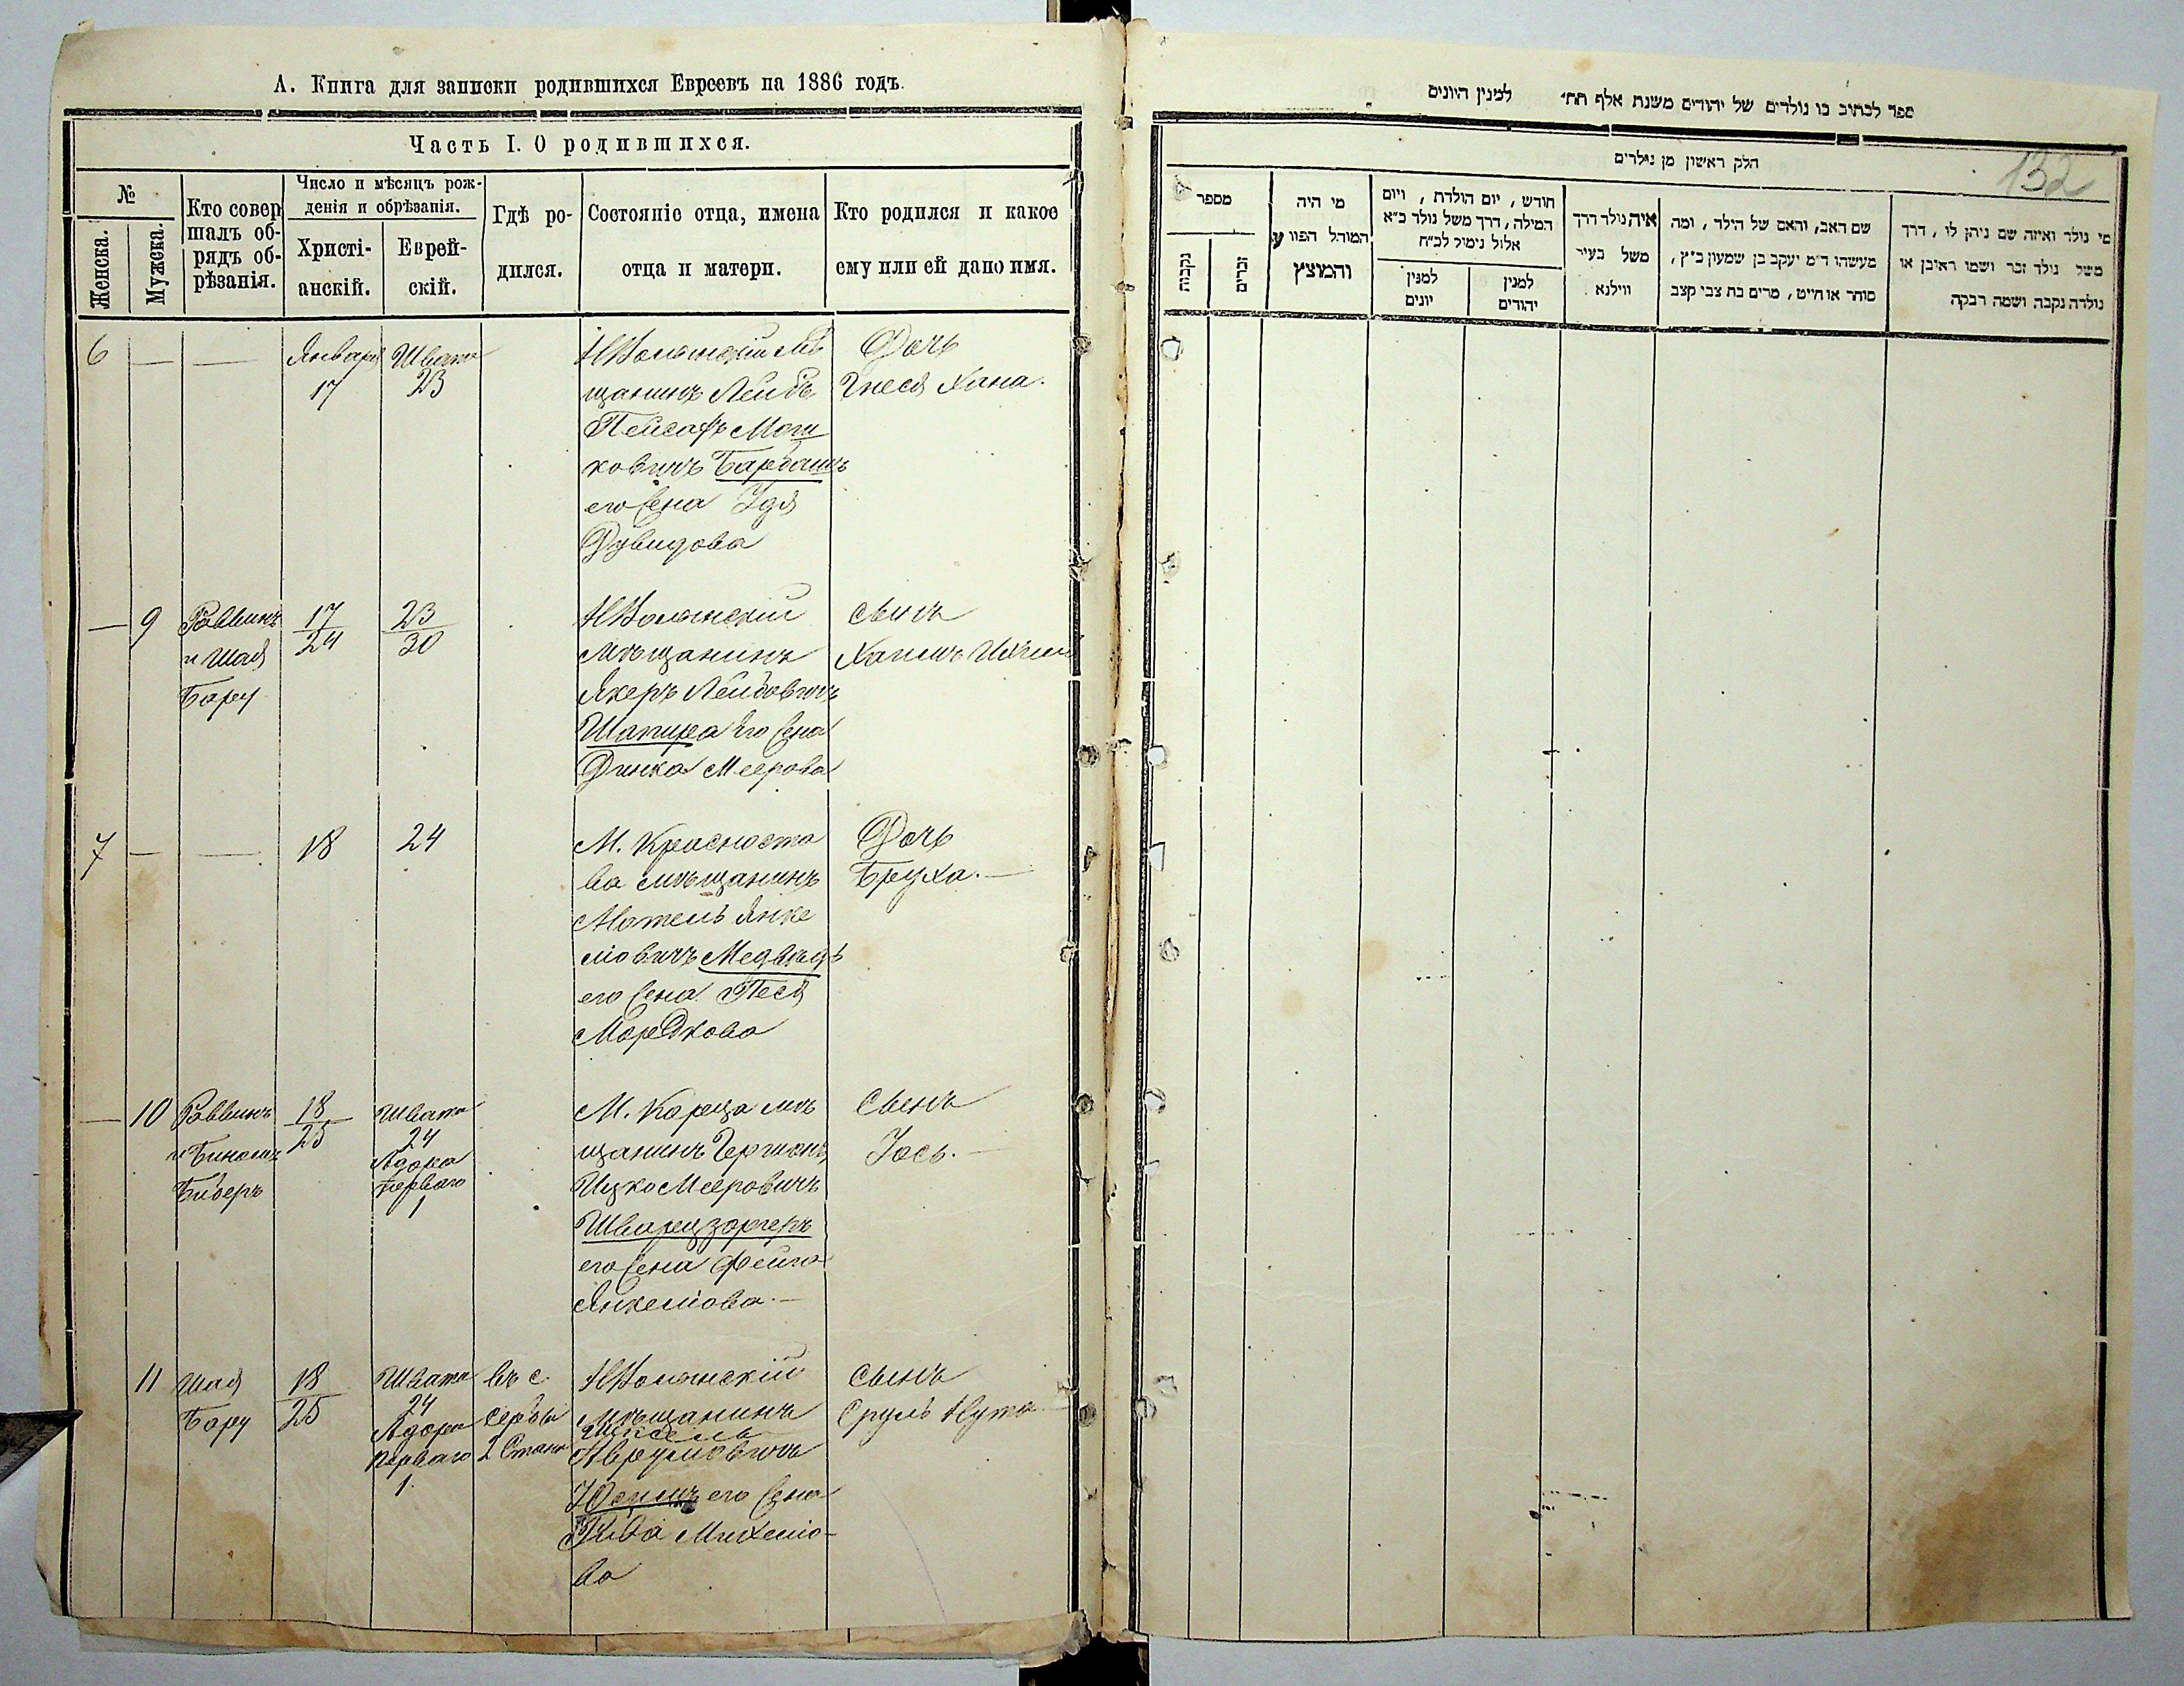 А. Книга для записки родившихся Евреевъ на 1886 годъ.
Часть I. О родившихся.
№
Женска.
Мужска.
Кто совер
шалъ об-
рядъ об-
рѣзанія.
Число и мѣсяцъ рож-
денія и обрѣзанія.
Христі-
анскій.
Еврей-
скій.
Гдѣ ро-
дился.
Состояніе отца, имена
отца и матери.
Кто родился и какое
ему или ей дано имя.
6 — — Января Швата
17 23
НВолынскій мѣ
щанинъ Лейбъ
Пейсахъ Мош
ковичъ Барбашъ
его жена Удя
Дувидова
Дочь
Гнеся Хана.
— 9 Раввинъ
и Шая
Бару
17
24
23
30
НВолынскій
мѣщанинъ
Янкеръ Лейбовичъ
Шапира его жена
Динка Меерова
сынъ
Хаимъ
7 — — 18 24
М. Красноста
ва мѣщанинъ
Мотель Янке
ліовичъ Медвѣдь
его жена Песя
Мордкова
Дочь
Бруха. —
— 10 Раввинъ
и
Биберъ
18
25
Швата
24
Адара
Перваго
1
М. Корца мѣ
щанинъ Гершонъ
Ицко Мееровичъ
его жена Фейга
Янкеліова. —
Сынъ
Іось. —
11 Шая
Бару
18
25
Швата
24
Адара
Перваго
1.
въ с.
Сербы
2 Стана
НВолынскій
мѣщанинъ
Аврумовичъ
его жена
Михеліо-
ва
сынъ
Сруль Нута
ספר לכתוב בו נולדים של יהודים משנת אלף תת״ למנין היונים
חלק ראשון מן נולדים
132
מספר
נקבות
זכרים
מי היה
המוהל הפורע
והמוצץ
חודש, יום הולדת, ויום
המילה, דרך משל נולד כ״א
אלול נימול לכ״ח
למנין
יונים
למנין
יהודים
איה נולד דרך
משל בעיר
ווילנא
שם האב, והאם של הילד, ומה
מעשהו ד״מ יעקב בן שמעון כ״ץ,
סוחר או חייט, מרים בת צבי קצב
מי נולד ואיזה שם ניתן לו, דרך
משל נולד זכר ושמו ראובן או
נולדה נקבה ושמה רבקה